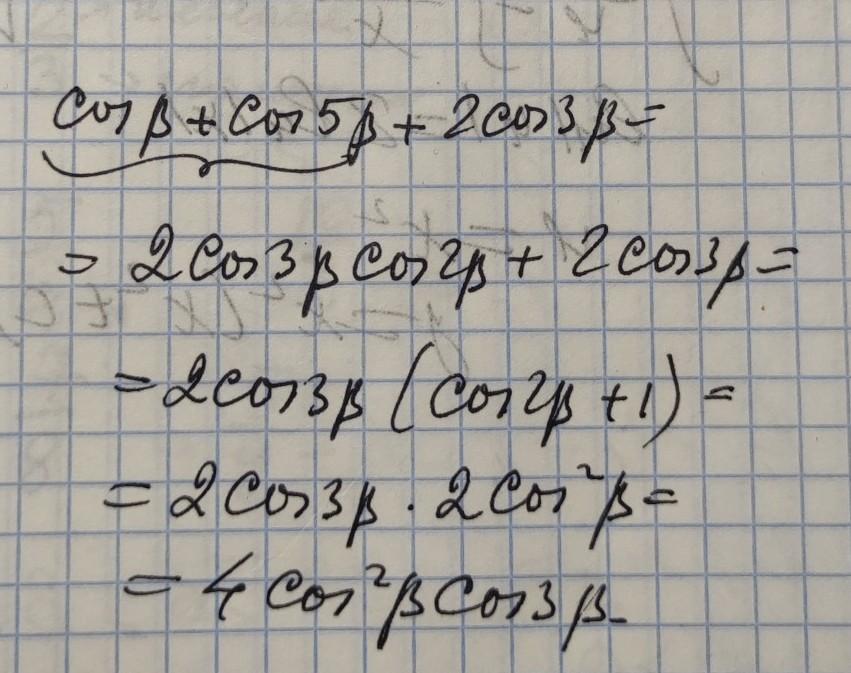 cos β + cos 5β + 2cos 3β =
= 2cos 3β cos 2β + 2cos 3β =
= 2cos 3β (cos 2β + 1) =
= 2cos 3β · 2cos²β =
= 4cos²β cos 3β.